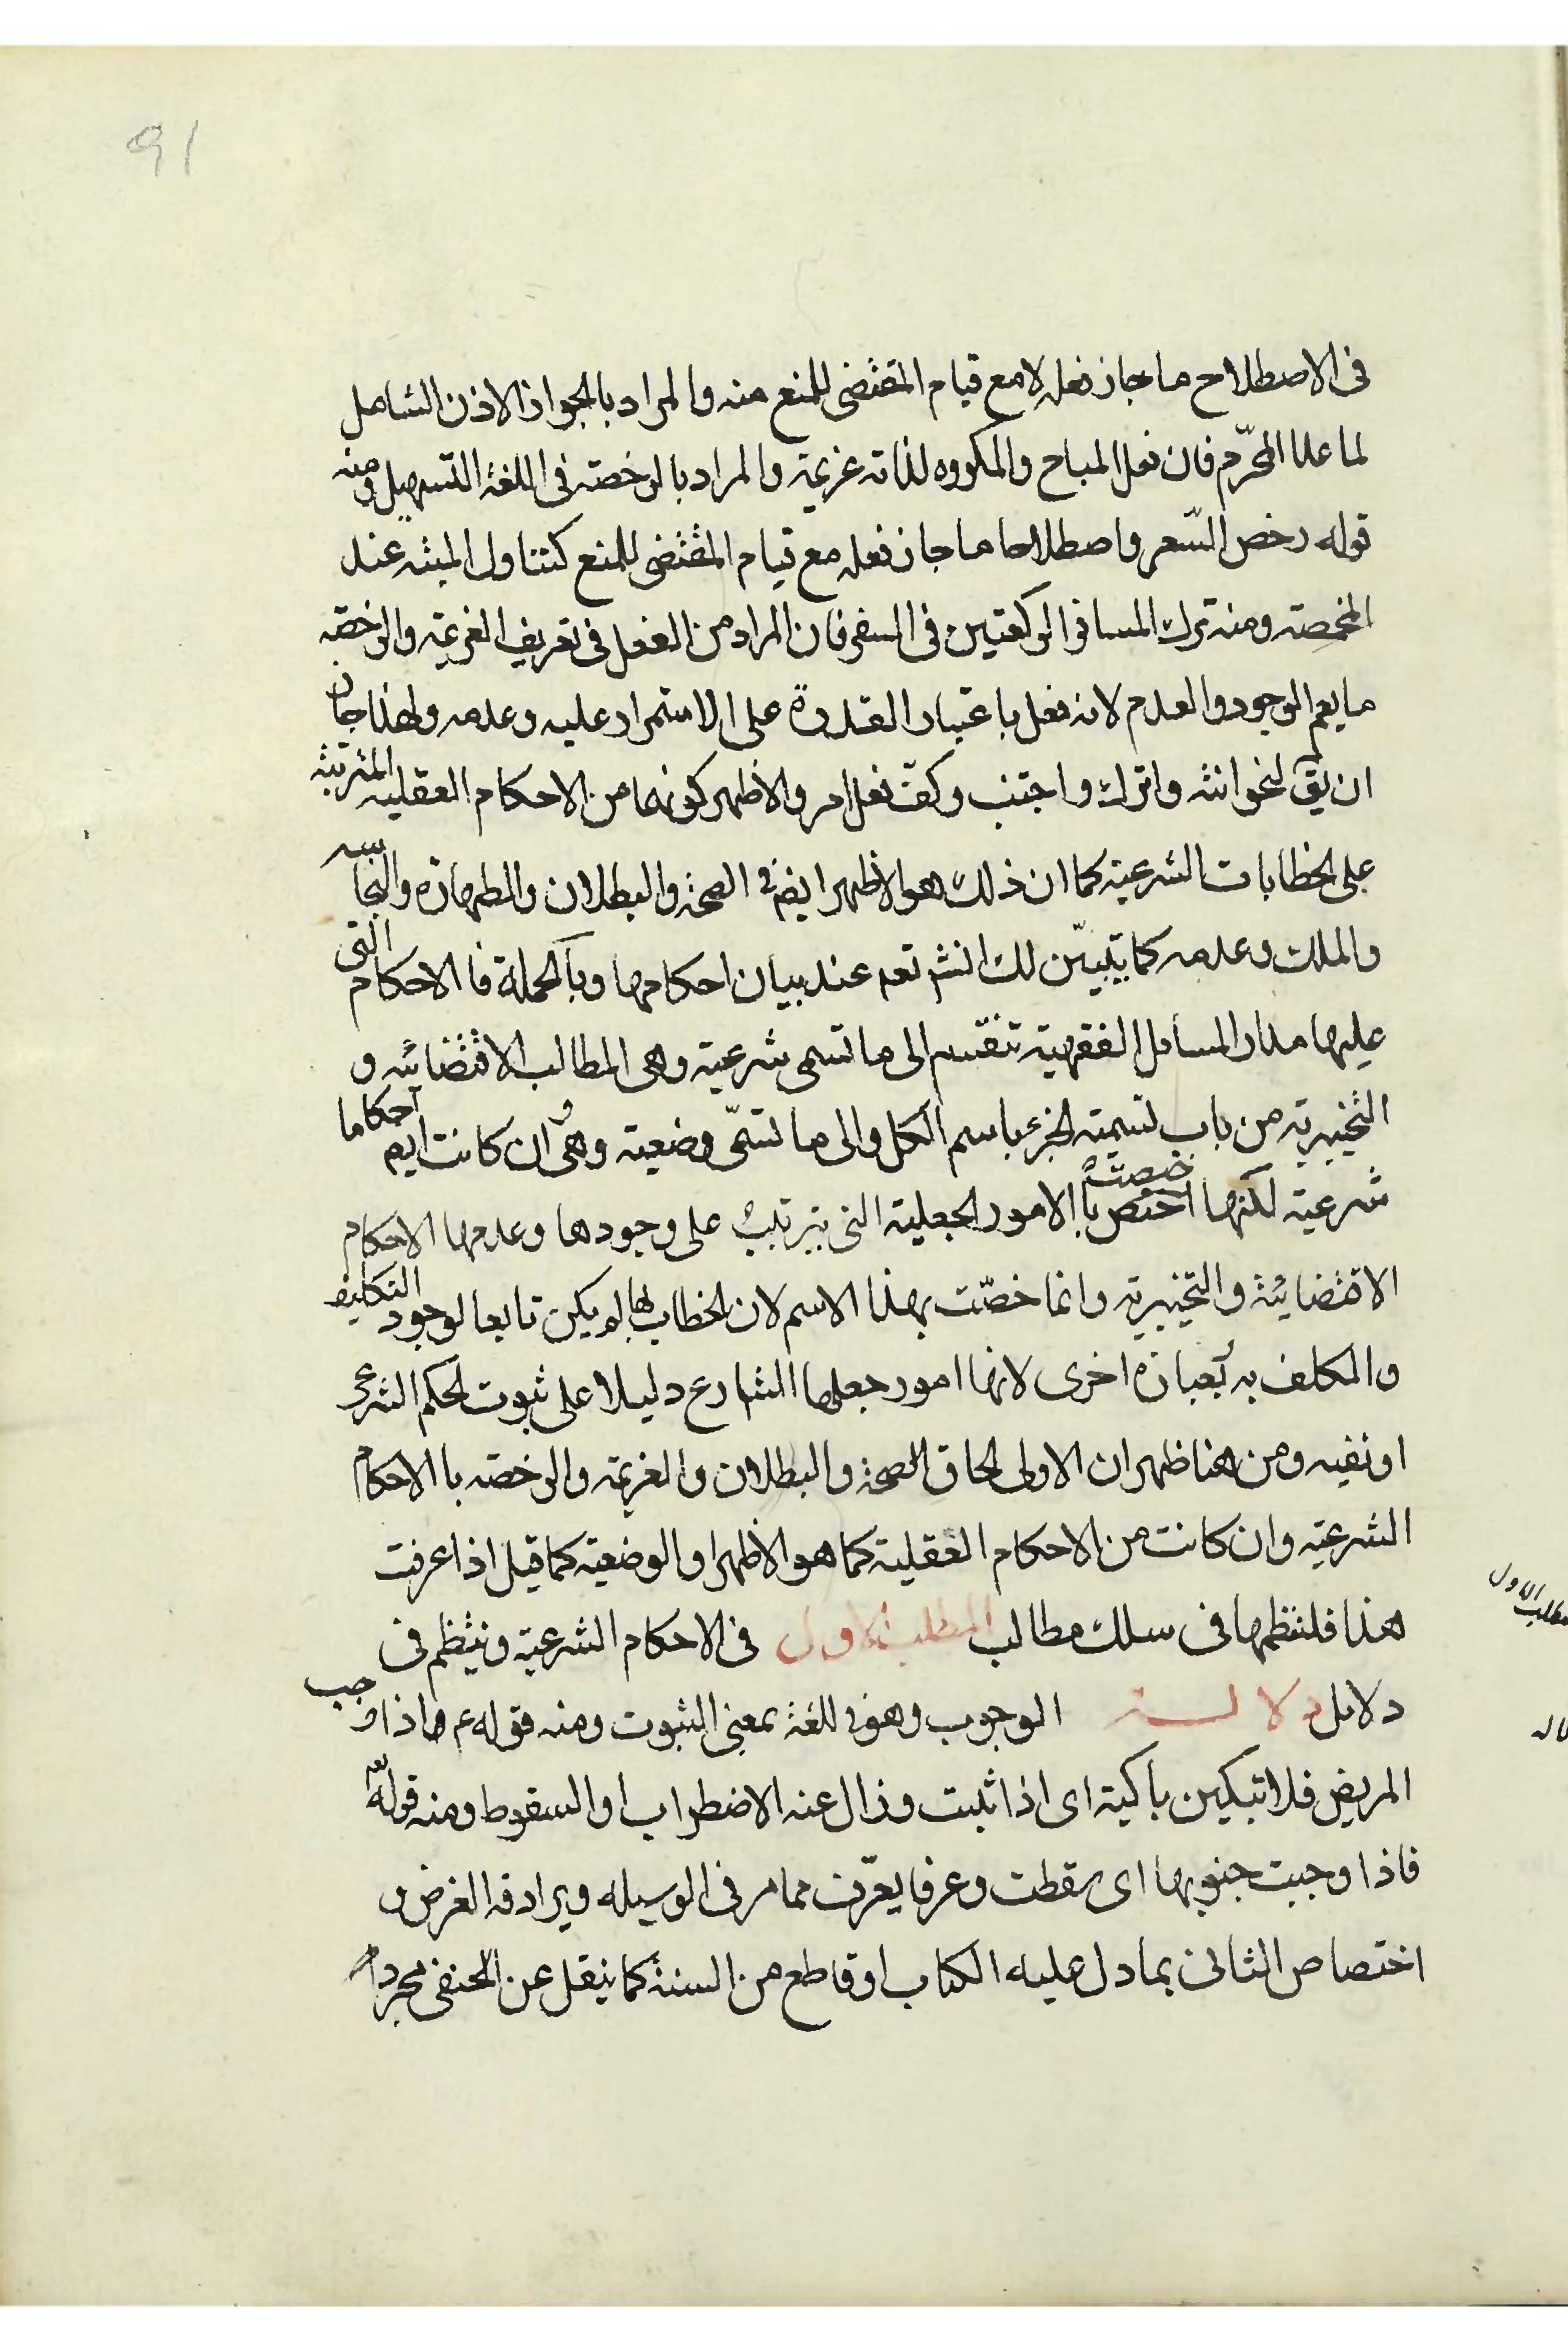 91
فى الاصطلاح ما جاز فعله لا مع قيام المقتضى للمنع منه والمراد بالجواز الاذن الشامل
لما عدا المحرّم فان فعل المباح والمكروه لذاته عزيمة والمراد بالرخصة فى اللغة التسهيل ومنه
قوله رخص السّعر واصطلاحا ما جاز فعله مع قيام المقتضى للمنع كتناول الميتة عند
المخمصة ومنه ترك المسافر الركعتين فى السفر فان المراد من الفعل فى تعريف العزيمة والرخصة
ما يعم الوجود والعدم لانه فعل باعتبار القدرة على الاستمرار عليه وعدمه ولهذا جاز
ان يق لنحو انته واترك واجتنب وكفّ فعل امر والاظهر كونهما من الاحكام العقلية المترتبة
على الخطابات الشرعية كما ان ذلك هو الاظهر ايض فى الصحة والبطلان والطهارة والنجاسة
والملك وعدمه كما يتبيّن لك انش تعه عند بيان احكامها وبالجملة فا الاحكام التى
عليها مدار المسامل الفقهية تنقسم الى ما تسمى شرعية وهى المطالب الاقتضائية و
التخييرية من باب تسمية الجزء باسم الكل والى ما تسمّى وضعية وهى وان كانت ايم احكاما
شرعية لكنها اختص خصت با الامور الجعلية التى يترتب على وجودها وعدمها الاحكام
الاقتضائية والتخييرية وانما خصّت بهذا الاسم لان الخطاب بها لم يكن تابعا لوجود التكليف
والمكلف به بعبارة اخرى لانها امور جعلها الشارع دليلا على ثبوت الحكم الشرعى
او نفيه ومن هنا ظهر ان الاولى الحاق الصحة والبطلان والعزيمة والرخصة با الاحكام
الشرعية وان كانت من الاحكام العقلية كما هو الاظهر او الوضعية كما قيل اذا عرفت
هذا فلننظمها فى سلك مطالب المطلب الاول فى الاحكام الشرعية وينتظم فى
مطلب الاول
دلايل دلالة الوجوب وهو فى اللغة بمعنى الثبوت ومنه قوله ع م اذا وجب
المريض فلا تبكين باكية اى اذا ثبت وزال عنه الاضطراب او السقوط ومنه قوله تع
فاذا وجبت جنوبها اى سقطت وعرفا يعرّف مما مر فى الوسيله ويرادفه الفرض و
اختصاص الثانى بما دل عليه الكتاب او قاطع من السنة كما ينقل عن الحنفى مجرد